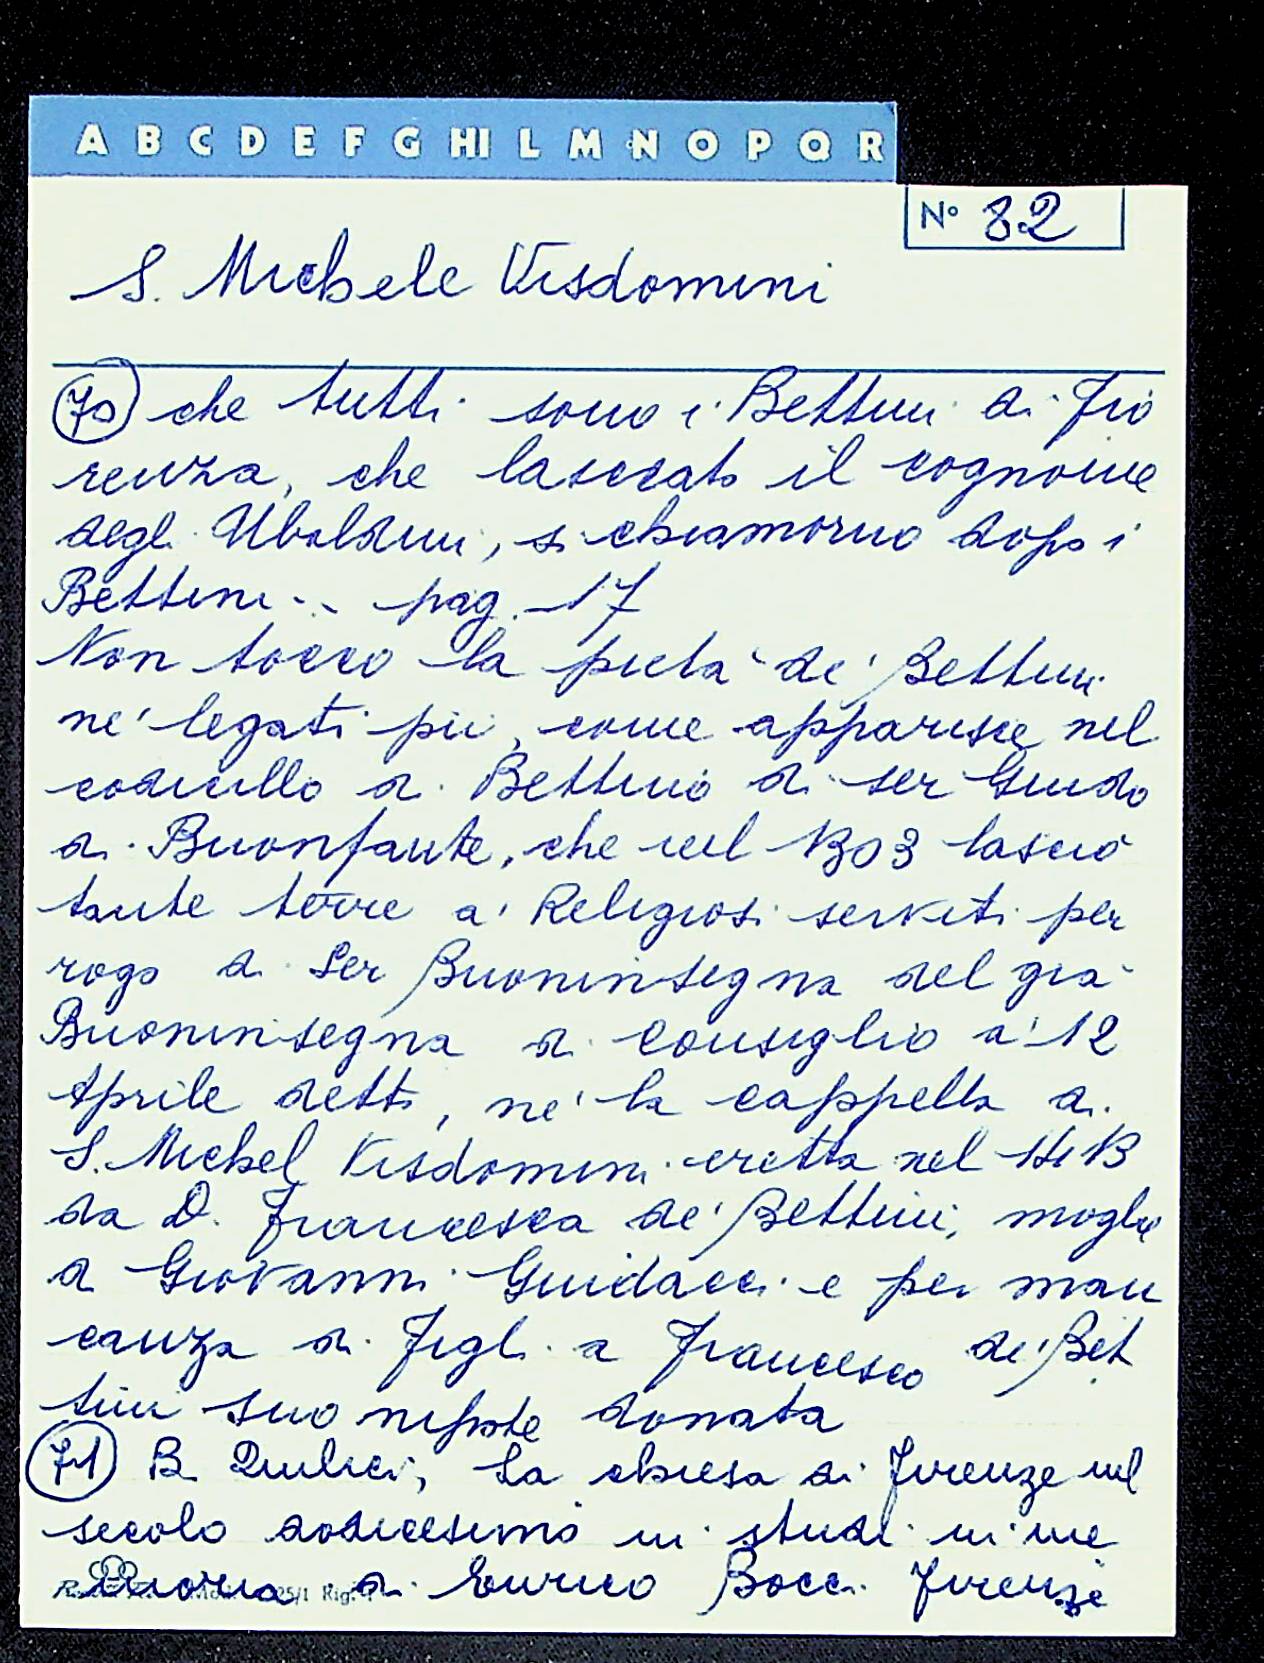 A B C D E F G HI L M N O P Q R
N° 82
S. Michele Visdomini
70 che tutti sono i Bettini di Fio
renza, che lasciato il cognome
degli Ubaldini, si chiamorno dopo i
Bettini.. pag. 17
Non tocco la pietà de' Bettini
né legati pii, come apparisce nel
codicillo di Bettino di ser Guido
di Buonfante, che nel 1303 lasciò
tante terre a' Religiosi serviti per
rogo di Ser Buoninsegna del già
Buoninsegna di Consiglio a' 12
Aprile detto, né la cappella di
S. Michel Visdomini eretta nel 1413
da D. Francesca de' Bettini, moglie
di Giovanni Guidacci e per man
canza di figli a Francesco de' Bet
tini suo nipote donata
71 B. Quilici, La chiesa di Firenze nel
secolo dodicesimo in studi in me
moria di Enrico Bocci Firenze
25/1 Rig.